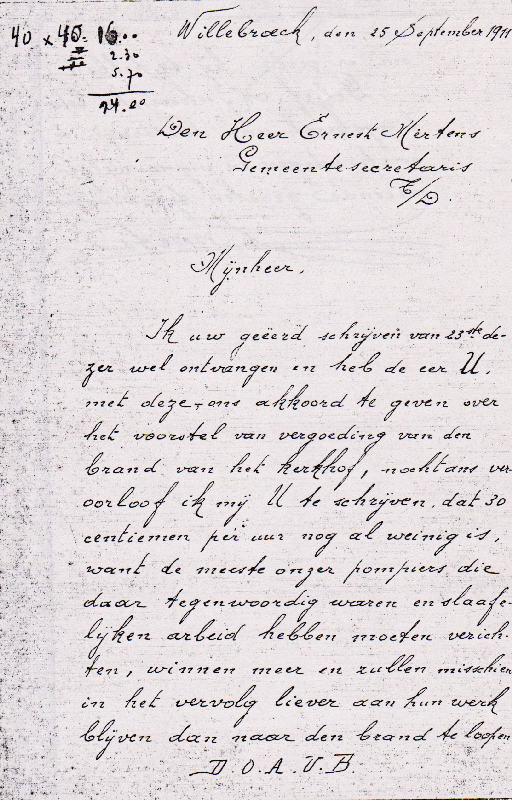 40 x 40 = 16.00
2.30
5.70
24.00
Willebroeck, den 25 September 1911
Den Heer Ernest Mertens
Gemeentesecretaris
E/D.
Mijnheer,
Ik uw geëerd schrijven van 23ste de-
zer wel ontvangen en heb de eer U.
met deze, ons akkoord te geven over
het voorstel van vergoeding van den
brand van het kerkhof, nochtans ver
oorloof ik mij U te schrijven, dat 30
centiemen per uur nog al weinig is,
want de meeste onzer pompiers die
daar tegenwoordig waren en slaafe-
lijken arbeid hebben moeten verich-
ten, winnen meer en zullen misschien
in het vervolg liever aan hun werk
blijven dan naar den brand te loopen
D.O.A.U.B.